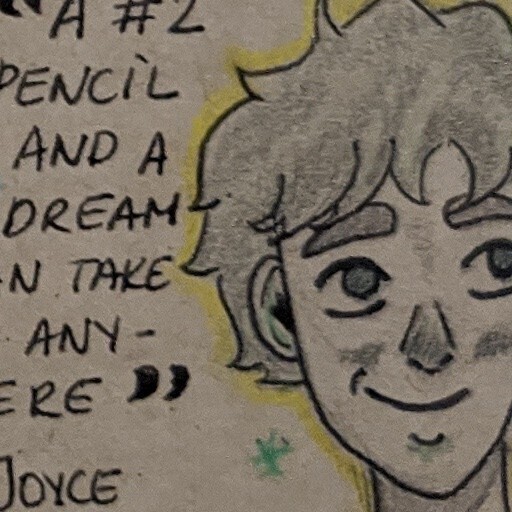 "A #2
PENCIL
AND A
DREAM
N TAKE
ANY-
ERE"
JOYCE